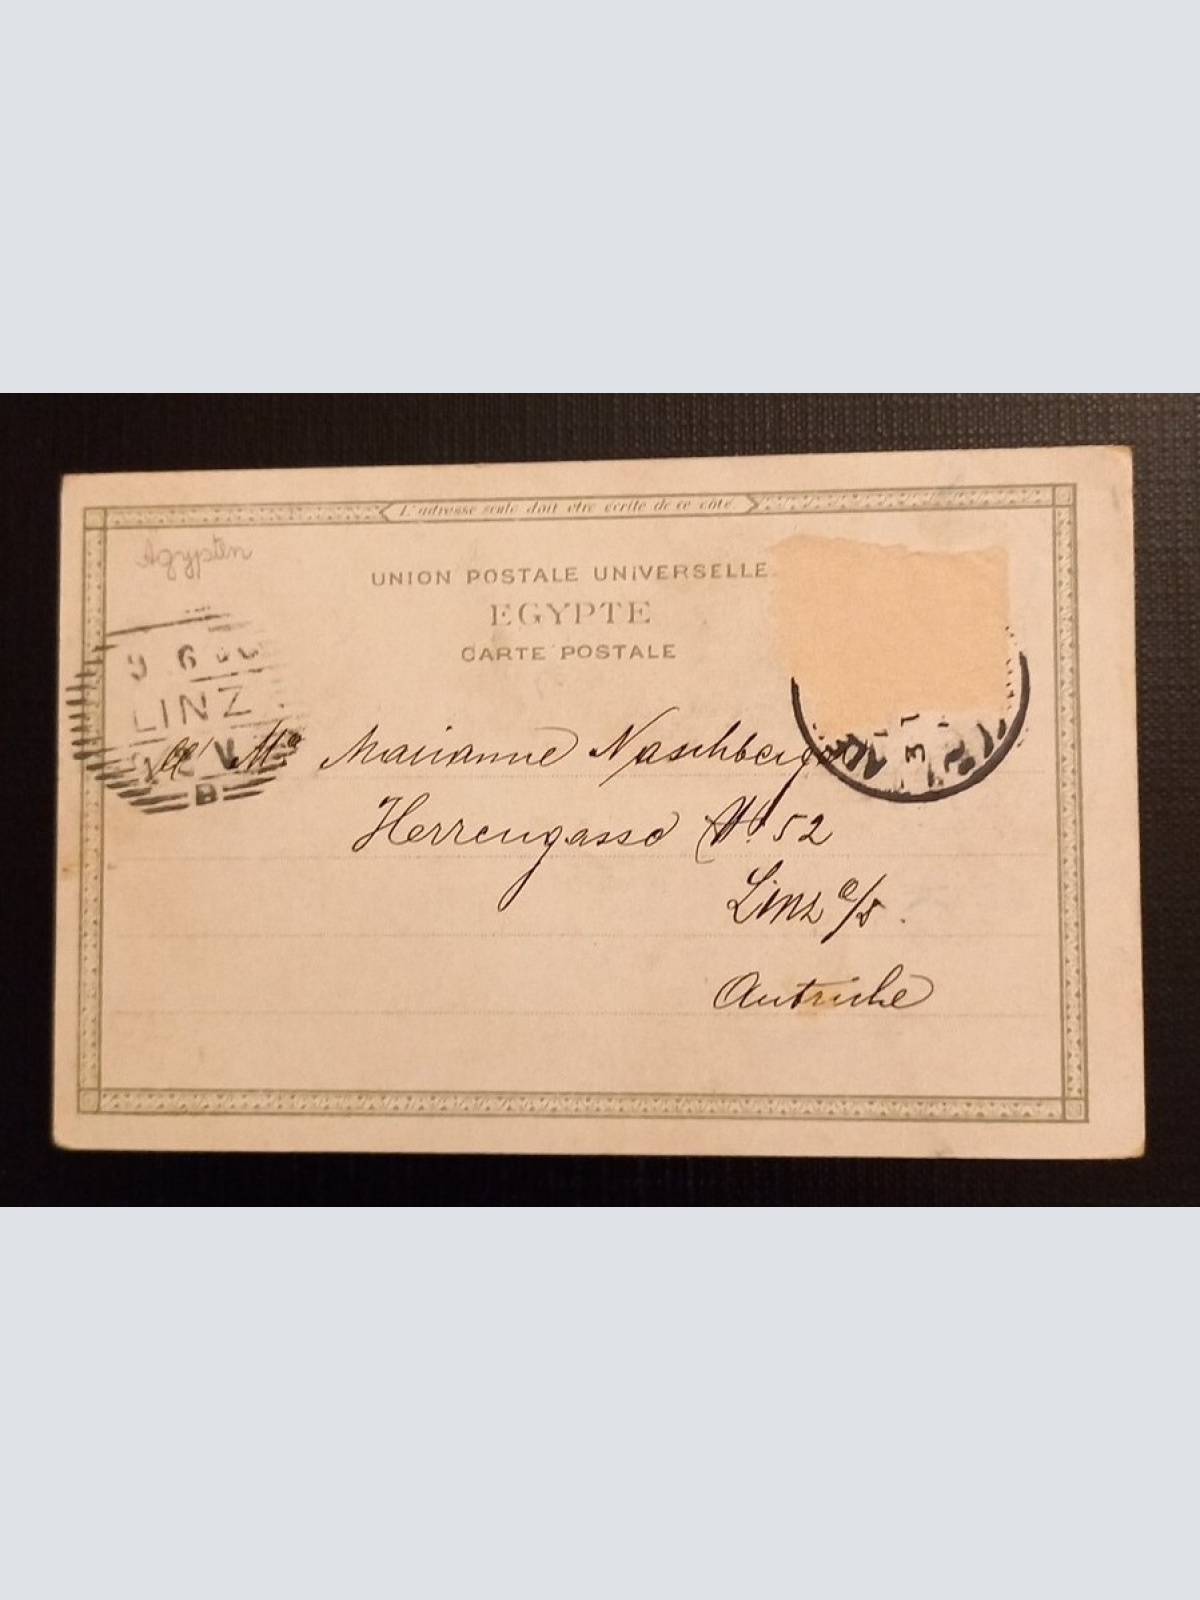 L'adresse seule doit être écrite de ce côté.
Ägypten
UNION POSTALE UNIVERSELLE
EGYPTE
CARTE POSTALE
9 6
LINZ
B
3
a Ma Marianne Naschberger
Herrengasse No. 52
Linz a/D.
Autriche